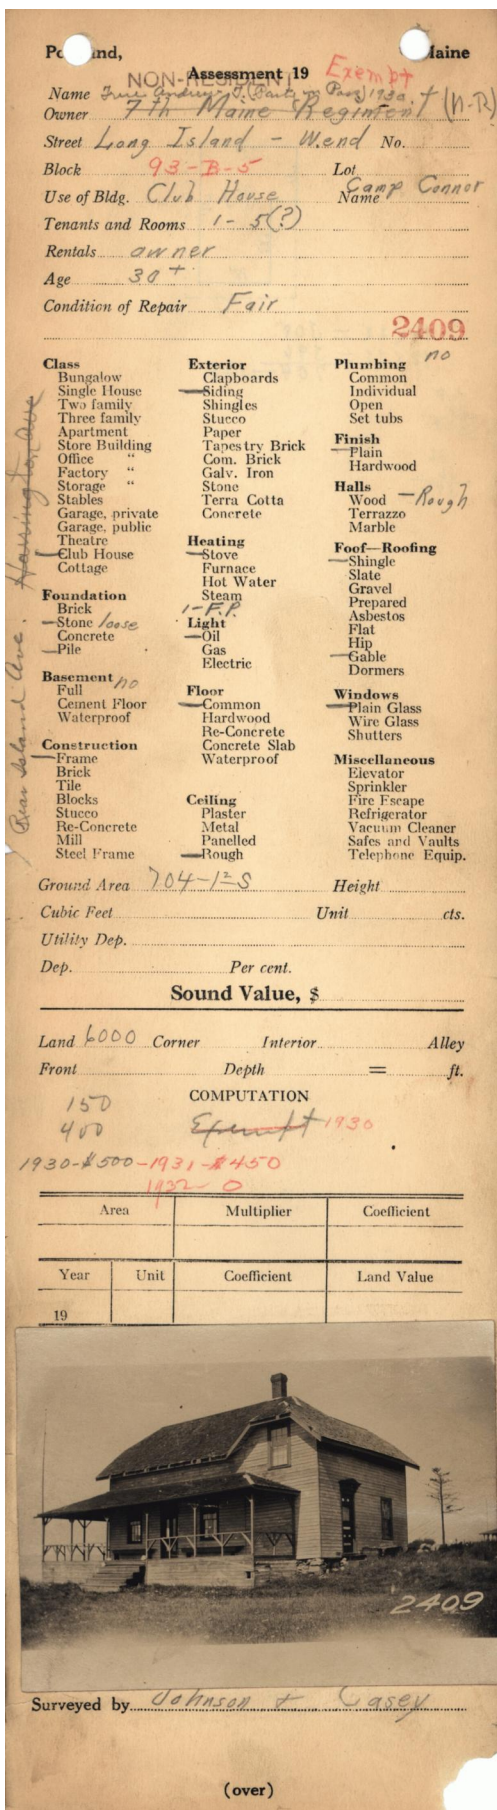 Po nd, Maine
Assessment 19 Exempt
NON-RESIDENT
Name Andrew J. (Party in Poss) 1930
Owner 7th Maine Regiment (N-R)
Street Long Island - W. end No.
Block 93-B-5 Lot
Use of Bldg. Club House Name Camp Connor
Tenants and Rooms 1- 5(?)
Rentals owner
Age 30+
Condition of Repair Fair
2409
Class
Bungalow
Single House
Two family
Three family
Apartment
Store Building
Office "
Factory "
Storage "
Stables
Garage, private
Garage, public
Theatre
Club House
Cottage
Foundation
Brick
Stone loose
Concrete
Pile
Basement no
Full
Cement Floor
Waterproof
Construction
Frame
Brick
Tile
Blocks
Stucco
Re-Concrete
Mill
Steel Frame
Island Ave.
Exterior
Clapboards
Siding
Shingles
Stucco
Paper
Tapestry Brick
Com. Brick
Galv. Iron
Stone
Terra Cotta
Concrete
Heating
Stove
Furnace
Hot Water
Steam
1-F.P.
Light
Oil
Gas
Electric
Floor
Common
Hardwood
Re-Concrete
Concrete Slab
Waterproof
Ceiling
Plaster
Metal
Panelled
Rough
Plumbing no
Common
Individual
Open
Set tubs
Finish
Plain
Hardwood
Halls
Wood - Rough
Terrazzo
Marble
Foof—Roofing
Shingle
Slate
Gravel
Prepared
Asbestos
Flat
Hip
Gable
Dormers
Windows
Plain Glass
Wire Glass
Shutters
Miscellaneous
Elevator
Sprinkler
Fire Escape
Refrigerator
Vacuum Cleaner
Safes and Vaults
Telephone Equip.
Ground Area 704-1½S Height
Cubic Feet Unit cts.
Utility Dep.
Dep. Per cent.
Sound Value, $
Land 6000 Corner Interior Alley
Front Depth = ft.
COMPUTATION
150
400 Exempt 1930
1930-$500-1931-$450
1932- 0
Area Multiplier Coefficient
Year Unit Coefficient Land Value
19
2409
Surveyed by Johnson + Casey
(over)